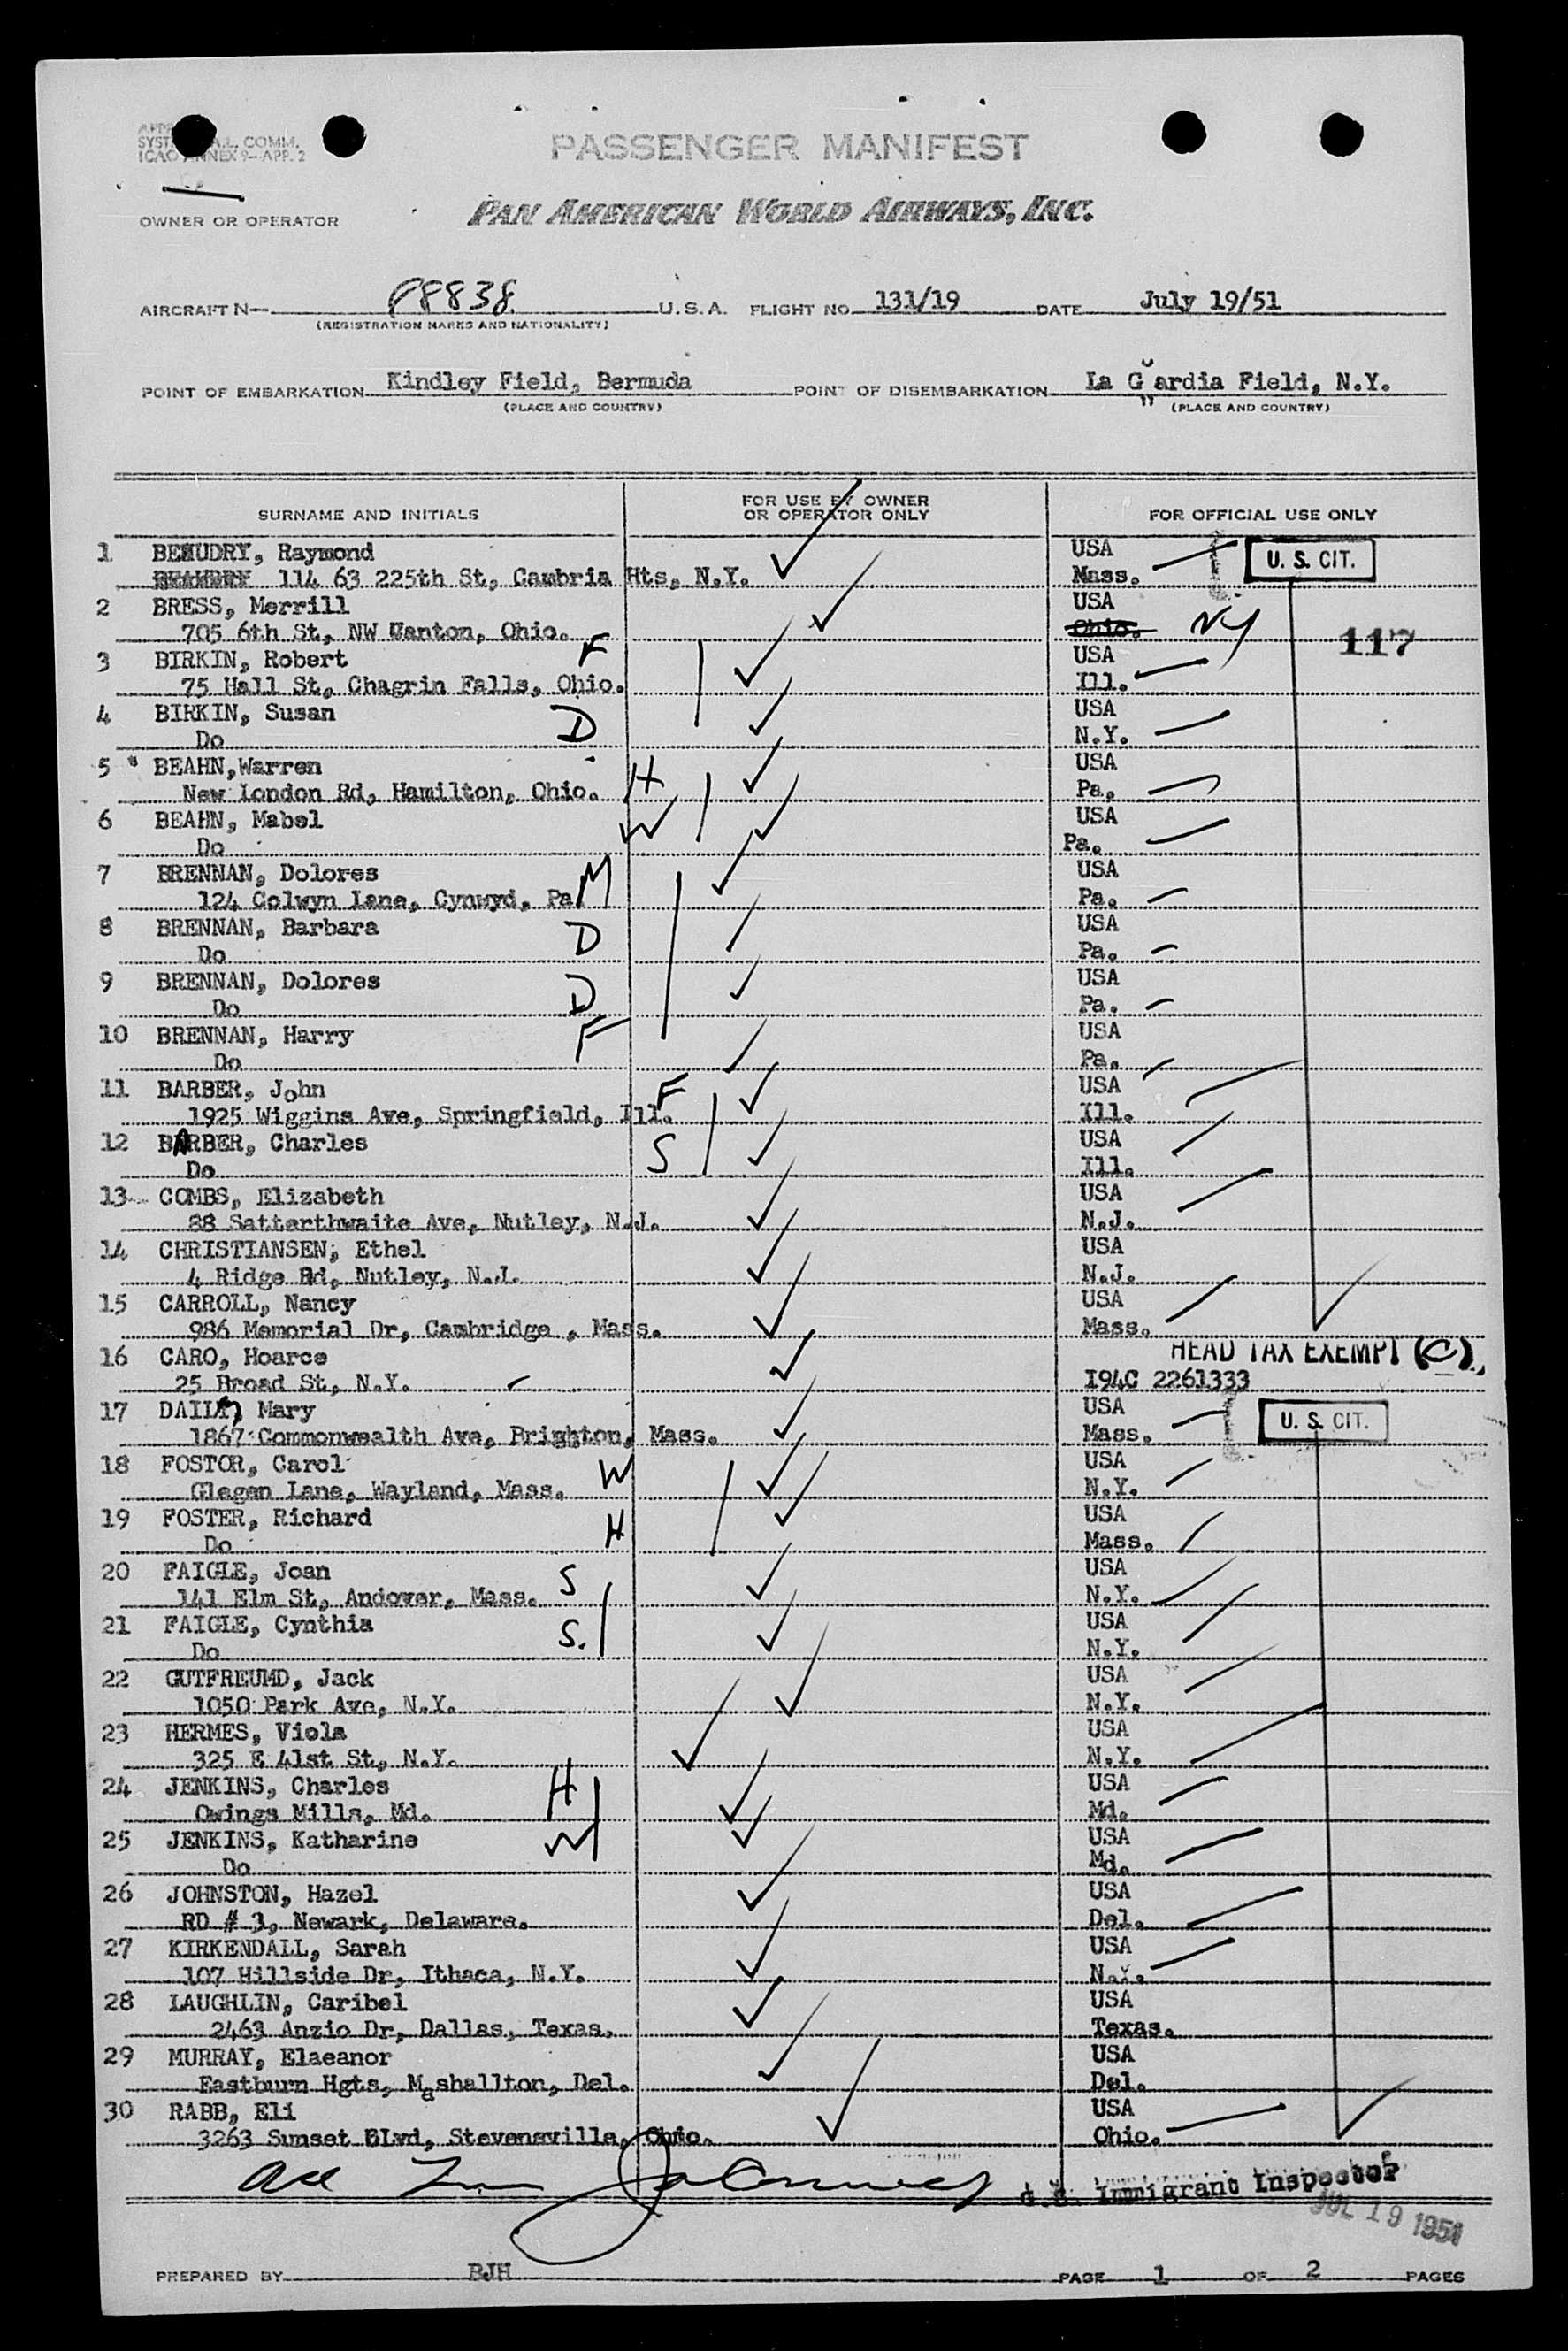 SYST A.L. COMM.
ICAO ANNEX 9-APP. 2
PASSENGER MANIFEST
OWNER OR OPERATOR PAN AMERICAN WORLD AIRWAYS, INC.
AIRCRAFT N— 88838 U.S.A. FLIGHT NO. 131/19 DATE July 19/51
(REGISTRATION MARKS AND NATIONALITY)
POINT OF EMBARKATION Kindley Field, Bermuda POINT OF DISEMBARKATION La G ardia Field, N.Y.
u
(PLACE AND COUNTRY) (PLACE AND COUNTRY)
SURNAME AND INITIALS FOR USE BY OWNER OR OPERATOR ONLY FOR OFFICIAL USE ONLY
1 BEAUDRY, Raymond USA U. S. CIT.
114 63 225th St, Cambria Hts, N.Y. Mass.
2 BRESS, Merrill USA
705 6th St, NW Canton, Ohio. Ohio. NY 117
3 BIRKIN, Robert F USA
75 Hall St, Chagrin Falls, Ohio. Ill.
4 BIRKIN, Susan D USA
Do N.Y.
5 BEAHN,Warren H USA
New London Rd, Hamilton, Ohio. Pa.
6 BEAHN, Mabel W USA
Do Pa.
7 BRENNAN, Dolores M USA
124 Colwyn Lane, Cynwyd, Pa Pa.
8 BRENNAN, Barbara D USA
Do Pa.
9 BRENNAN, Dolores D USA
Do Pa.
10 BRENNAN, Harry F USA
Do Pa.
11 BARBER, John F USA
1925 Wiggins Ave, Springfield, Ill. Ill.
12 BARBER, Charles S USA
Do Ill.
13 COMBS, Elizabeth USA
88 Satterthwaite Ave, Nutley, N.J. N.J.
14 CHRISTIANSEN, Ethel USA
4 Ridge Rd, Nutley, N.J. N.J.
15 CARROLL, Nancy USA
986 Memorial Dr, Cambridge , Mass. Mass.
16 CARO, Hoarce HEAD TAX EXEMPT (C)
25 Broad St, N.Y. I94C 2261333
17 Mary USA U. S. CIT.
1867 Commonwealth Ave, Brighton, Mass. Mass.
18 FOSTOR, Carol W USA
Glegen Lane, Wayland, Mass. N.Y.
19 FOSTER, Richard H USA
Do Mass.
20 FAIGLE, Joan S USA
141 Elm St, Andover, Mass. N.Y.
21 FAIGLE, Cynthia S. USA
Do N.Y.
22 GUTFREUMD, Jack USA
1050 Park Ave, N.Y. N.Y.
23 HERMES, Viola USA
325 E 41st St, N.Y. N.Y.
24 JENKINS, Charles H USA
Owings Mills, Md. Md.
25 JENKINS, Katharine W USA
Do Md.
26 JOHNSTON, Hazel USA
RD # 3, Newark, Delaware. Del.
27 KIRKENDALL, Sarah USA
107 Hillside Dr, Ithaca, N.Y. N.Y.
28 LAUGHLIN, Caribel USA
2463 Anzio Dr, Dallas, Texas. Texas.
29 MURRAY, Elaeanor USA
Eastburn Hgts, Mashallton, Del. Del.
30 RABB, Eli USA
3263 Sunset BLvd, Stevensville, Ohio. Ohio.
U.S. Immigrant Inspector
JUL 19 1951
PREPARED BY BJH PAGE 1 OF 2 PAGES